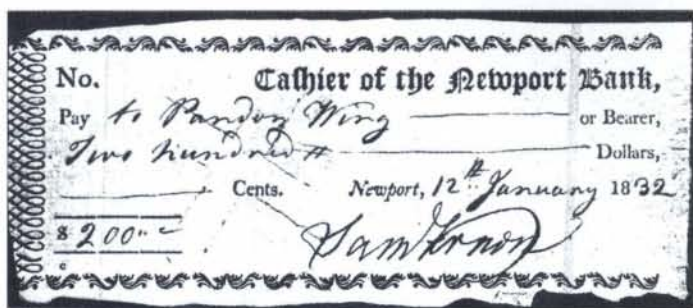 No. Cashier of the Newport Bank,
Pay to Pardon Wing or Bearer,
Two hundred Dollars,
Cents. Newport, 12th January 1832
$ 200
Sam Vernon